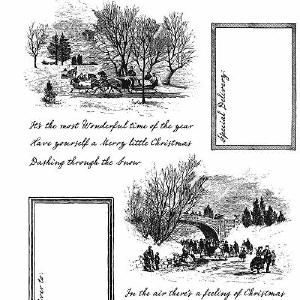 It's the most Wonderful time of the year
Have yourself a Merry little Christmas
Dashing through the Snow
Special Delivery:
to:
In the air there's a feeling of Christmas